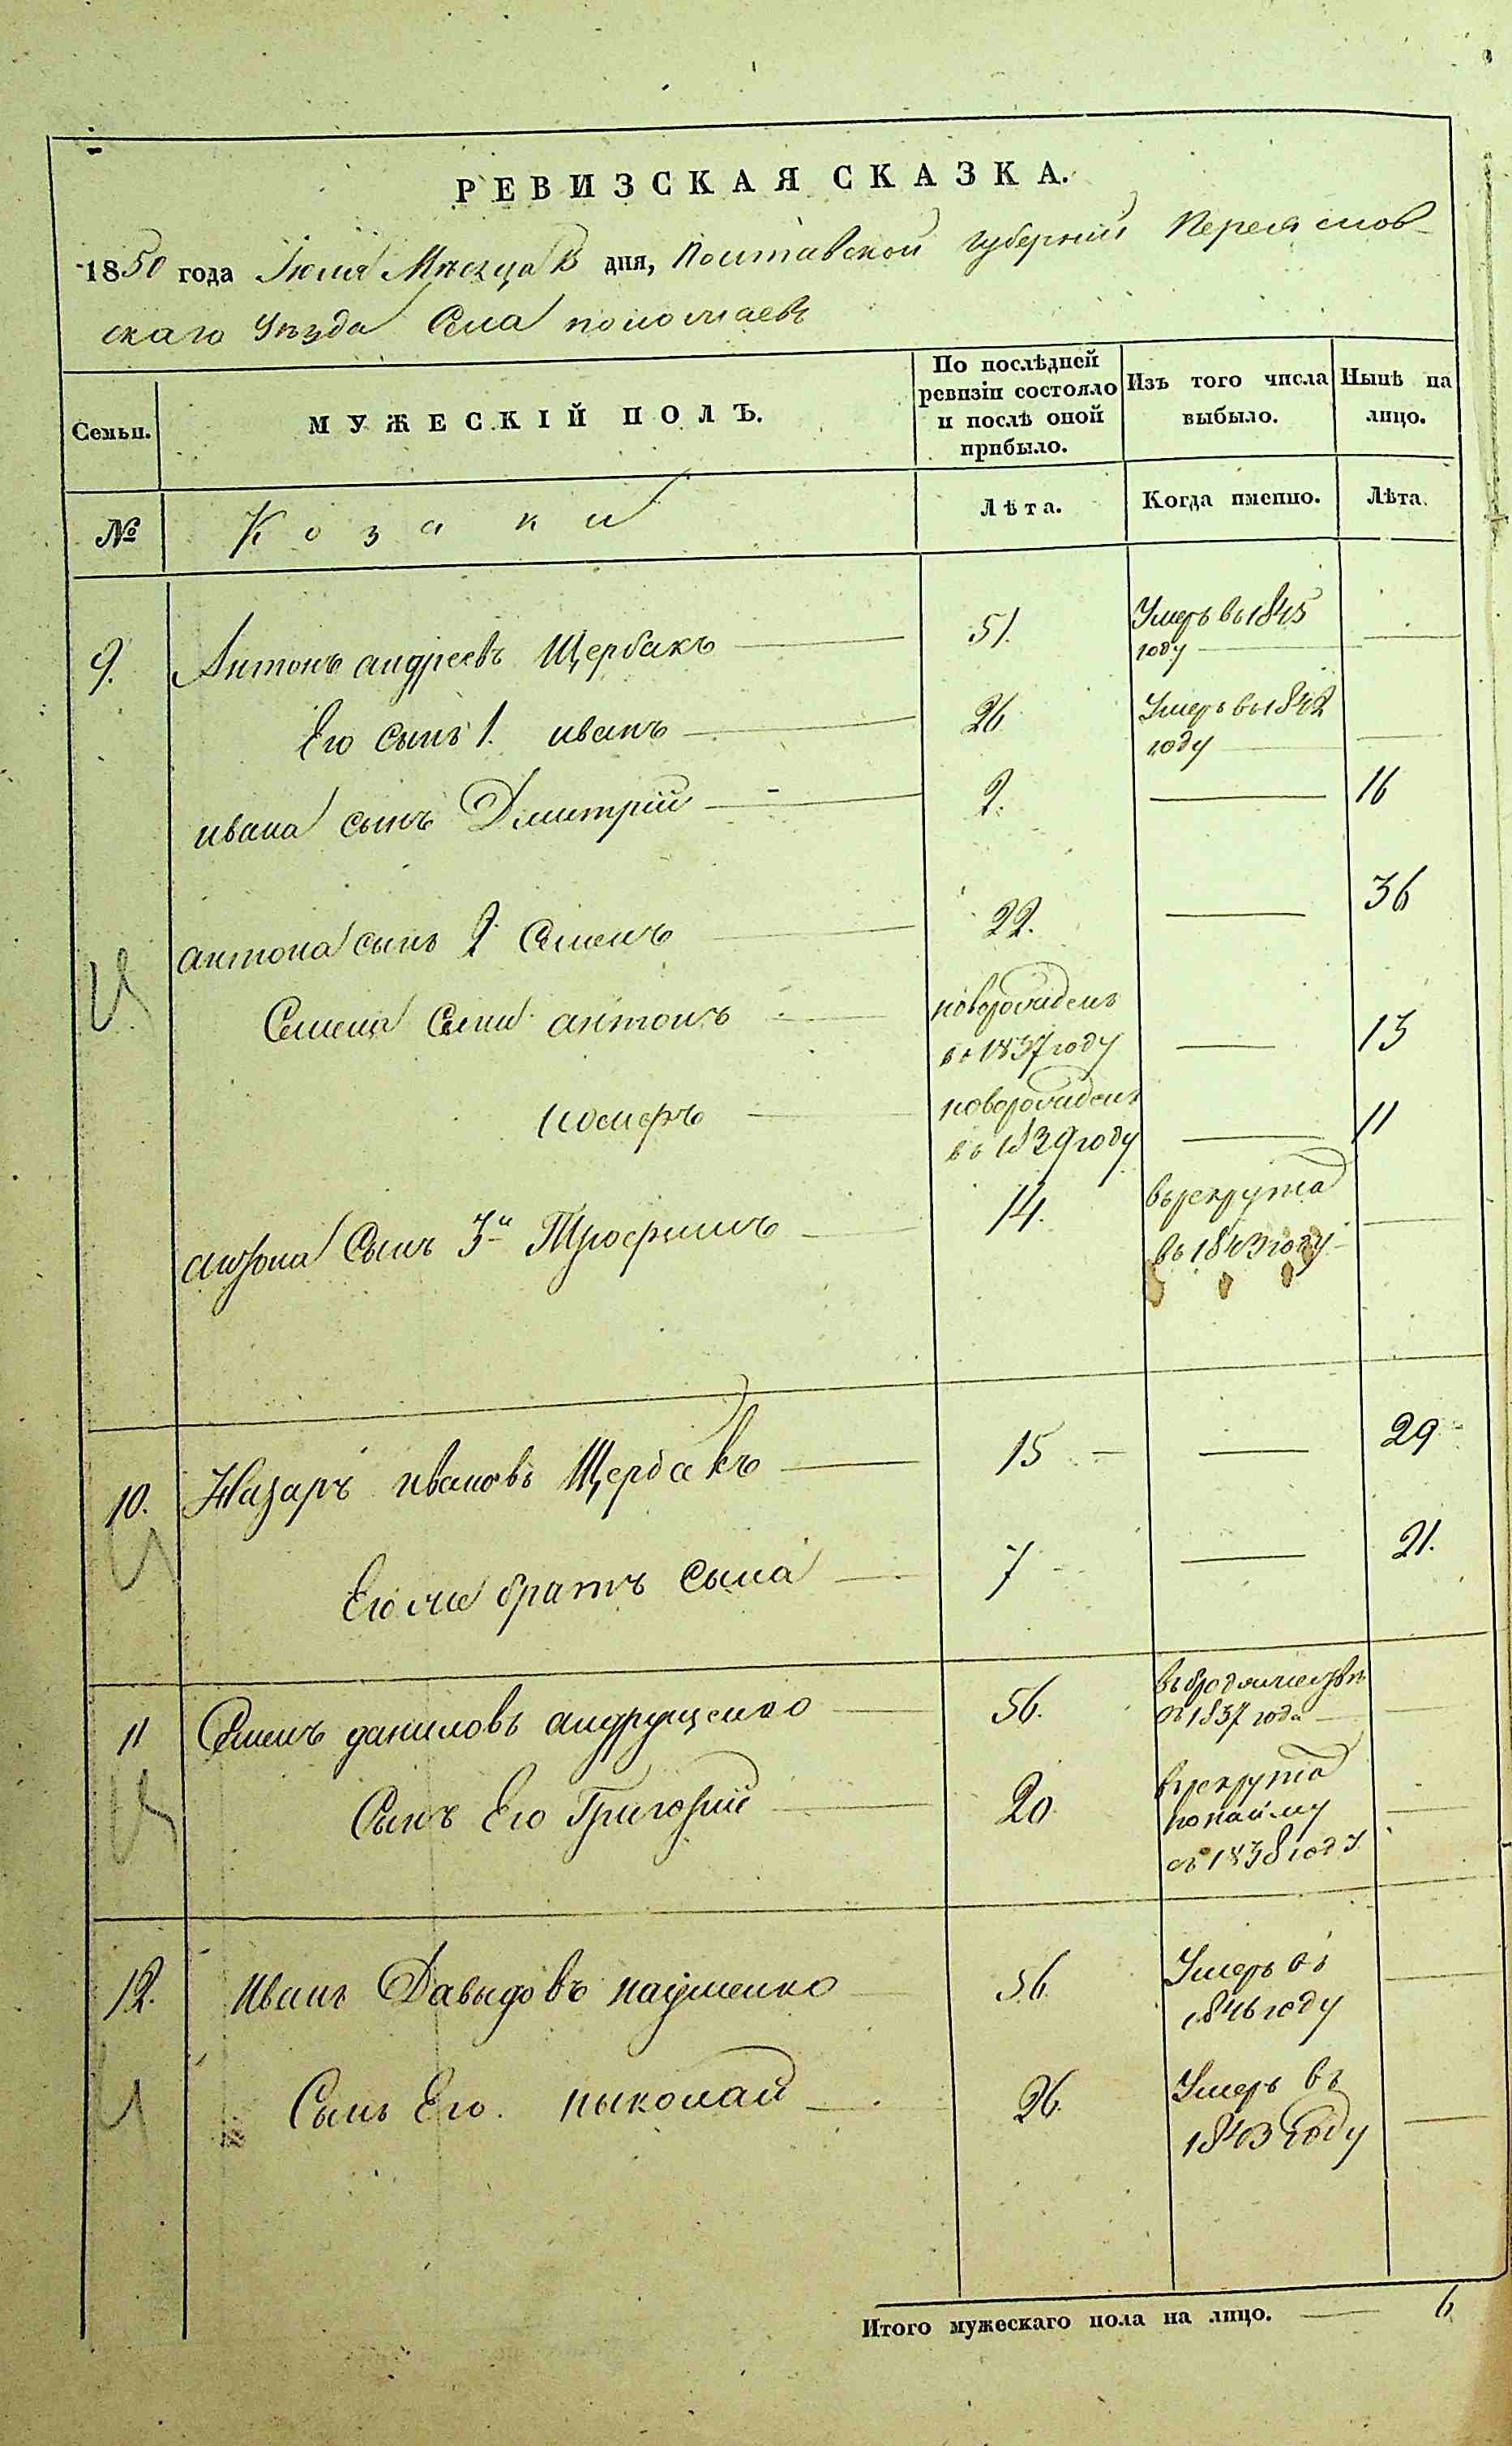 РЕВИЗСКАЯ СКАЗКА.
1850 года Іюля Мѣсяца дня, Полтавской губерніи Переяслов-
скаго Уѣзда Села
Семьи. МУЖЕСКІЙ ПОЛЪ. По послѣдней ревизіи состояло и послѣ оной прибыло. Изъ того числа выбыло. Нынѣ на лицо.
№ Козаки Лѣта. Когда именно. Лѣта.
9. Антонъ андреевъ Щербакъ 51. Умеръ въ 1845 году
Его сынъ 1. иванъ 26 Умеръ въ 1842 году
ивана сынъ Дмитрій 2. 16
антона сынъ 2 Семенъ 22. 36
Семена сыни антонъ новорожденъ въ 1837 году 13
иосифъ новорожденъ въ 1839 году 11
антона Сынъ 3й Трофимъ 14. врекрута въ 1843 году
10. Назаръ ивановъ Щербакъ 15 29
Его же братъ сыла 7 21.
11 Семенъ даниловъ андрущенко 56. въ бродяжествѣ съ 1837 года
Сынъ Его Григорий 20 врекрута по найму въ 1838 году
12. Иванъ Давыдовъ науменко 56 Умеръ въ 1846 году
Сынъ Его. ныколай 26. Умеръ въ 1843 году
Итого мужескаго пола на лицо. 6